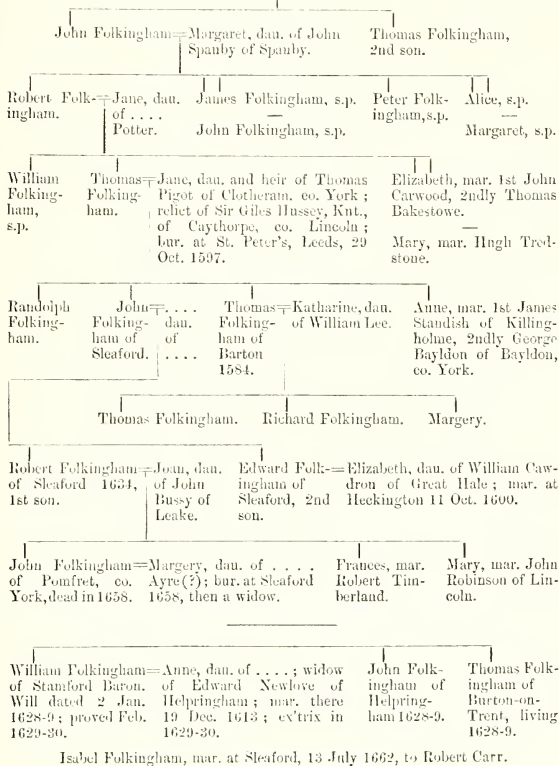 John Folkingham=Margaret, dau. of John
Spanby of Spanby.
Thomas Folkingham,
2nd son.
Robert Folk-
ingham.
=Jane, dau.
of . . . .
Potter.
James Folkingham, s.p.
—
John Folkingham, s.p.
Peter Folk-
ingham, s.p.
Alice, s.p.
—
Margaret, s.p.
William
Folking-
ham,
s.p.
Thomas
Folking-
ham.
=Jane, dau. and heir of Thomas
Pigot of Clotheram, co. York ;
relict of Sir Giles Hussey, Knt.,
of Caythorpe, co. Lincoln ;
bur. at St. Peter's, Leeds, 29
Oct. 1597.
Elizabeth, mar. 1st John
Carwood, 2ndly Thomas
Bakestowe.
—
Mary, mar. Hugh Tred-
stone.
Randolph
Folking-
ham.
John
Folking-
ham of
Sleaford.
= . . . .
dau.
of
. . . .
Thomas
Folking-
ham of
Barton
1584.
=Katharine, dau.
of William Lee.
Anne, mar. 1st James
Standish of Killing-
holme, 2ndly George
Bayldon of Bayldon,
co. York.
Thomas Folkingham.
Richard Folkingham.
Margery.
Robert Folkingham
of Sleaford 1634,
1st son.
=Joan, dau.
of John
Bussy of
Leake.
Edward Folk-
ingham of
Sleaford, 2nd
son.
=Elizabeth, dau. of William Caw-
dron of Great Hale ; mar. at
Heckington 11 Oct. 1600.
John Folkingham
of Pomfret, co.
York, dead in 1658.
=Margery, dau. of . . . .
Ayre (?) ; bur. at Sleaford
1658, then a widow.
Frances, mar.
Robert Tim-
berland.
Mary, mar. John
Robinson of Lin-
coln.
William Folkingham
of Stamford Baron.
Will dated 2 Jan.
1628-9 ; proved Feb.
1629-30.
=Anne, dau. of . . . . ; widow
of Edward Newlove of
Helpringham ; mar. there
19 Dec. 1613 ; ex'trix in
1629-30.
John Folk-
ingham of
Helpring-
ham 1628-9.
Thomas Folk-
ingham of
Burton-on-
Trent, living
1628-9.
Isabel Folkingham, mar. at Sleaford, 13 July 1662, to Robert Carr.